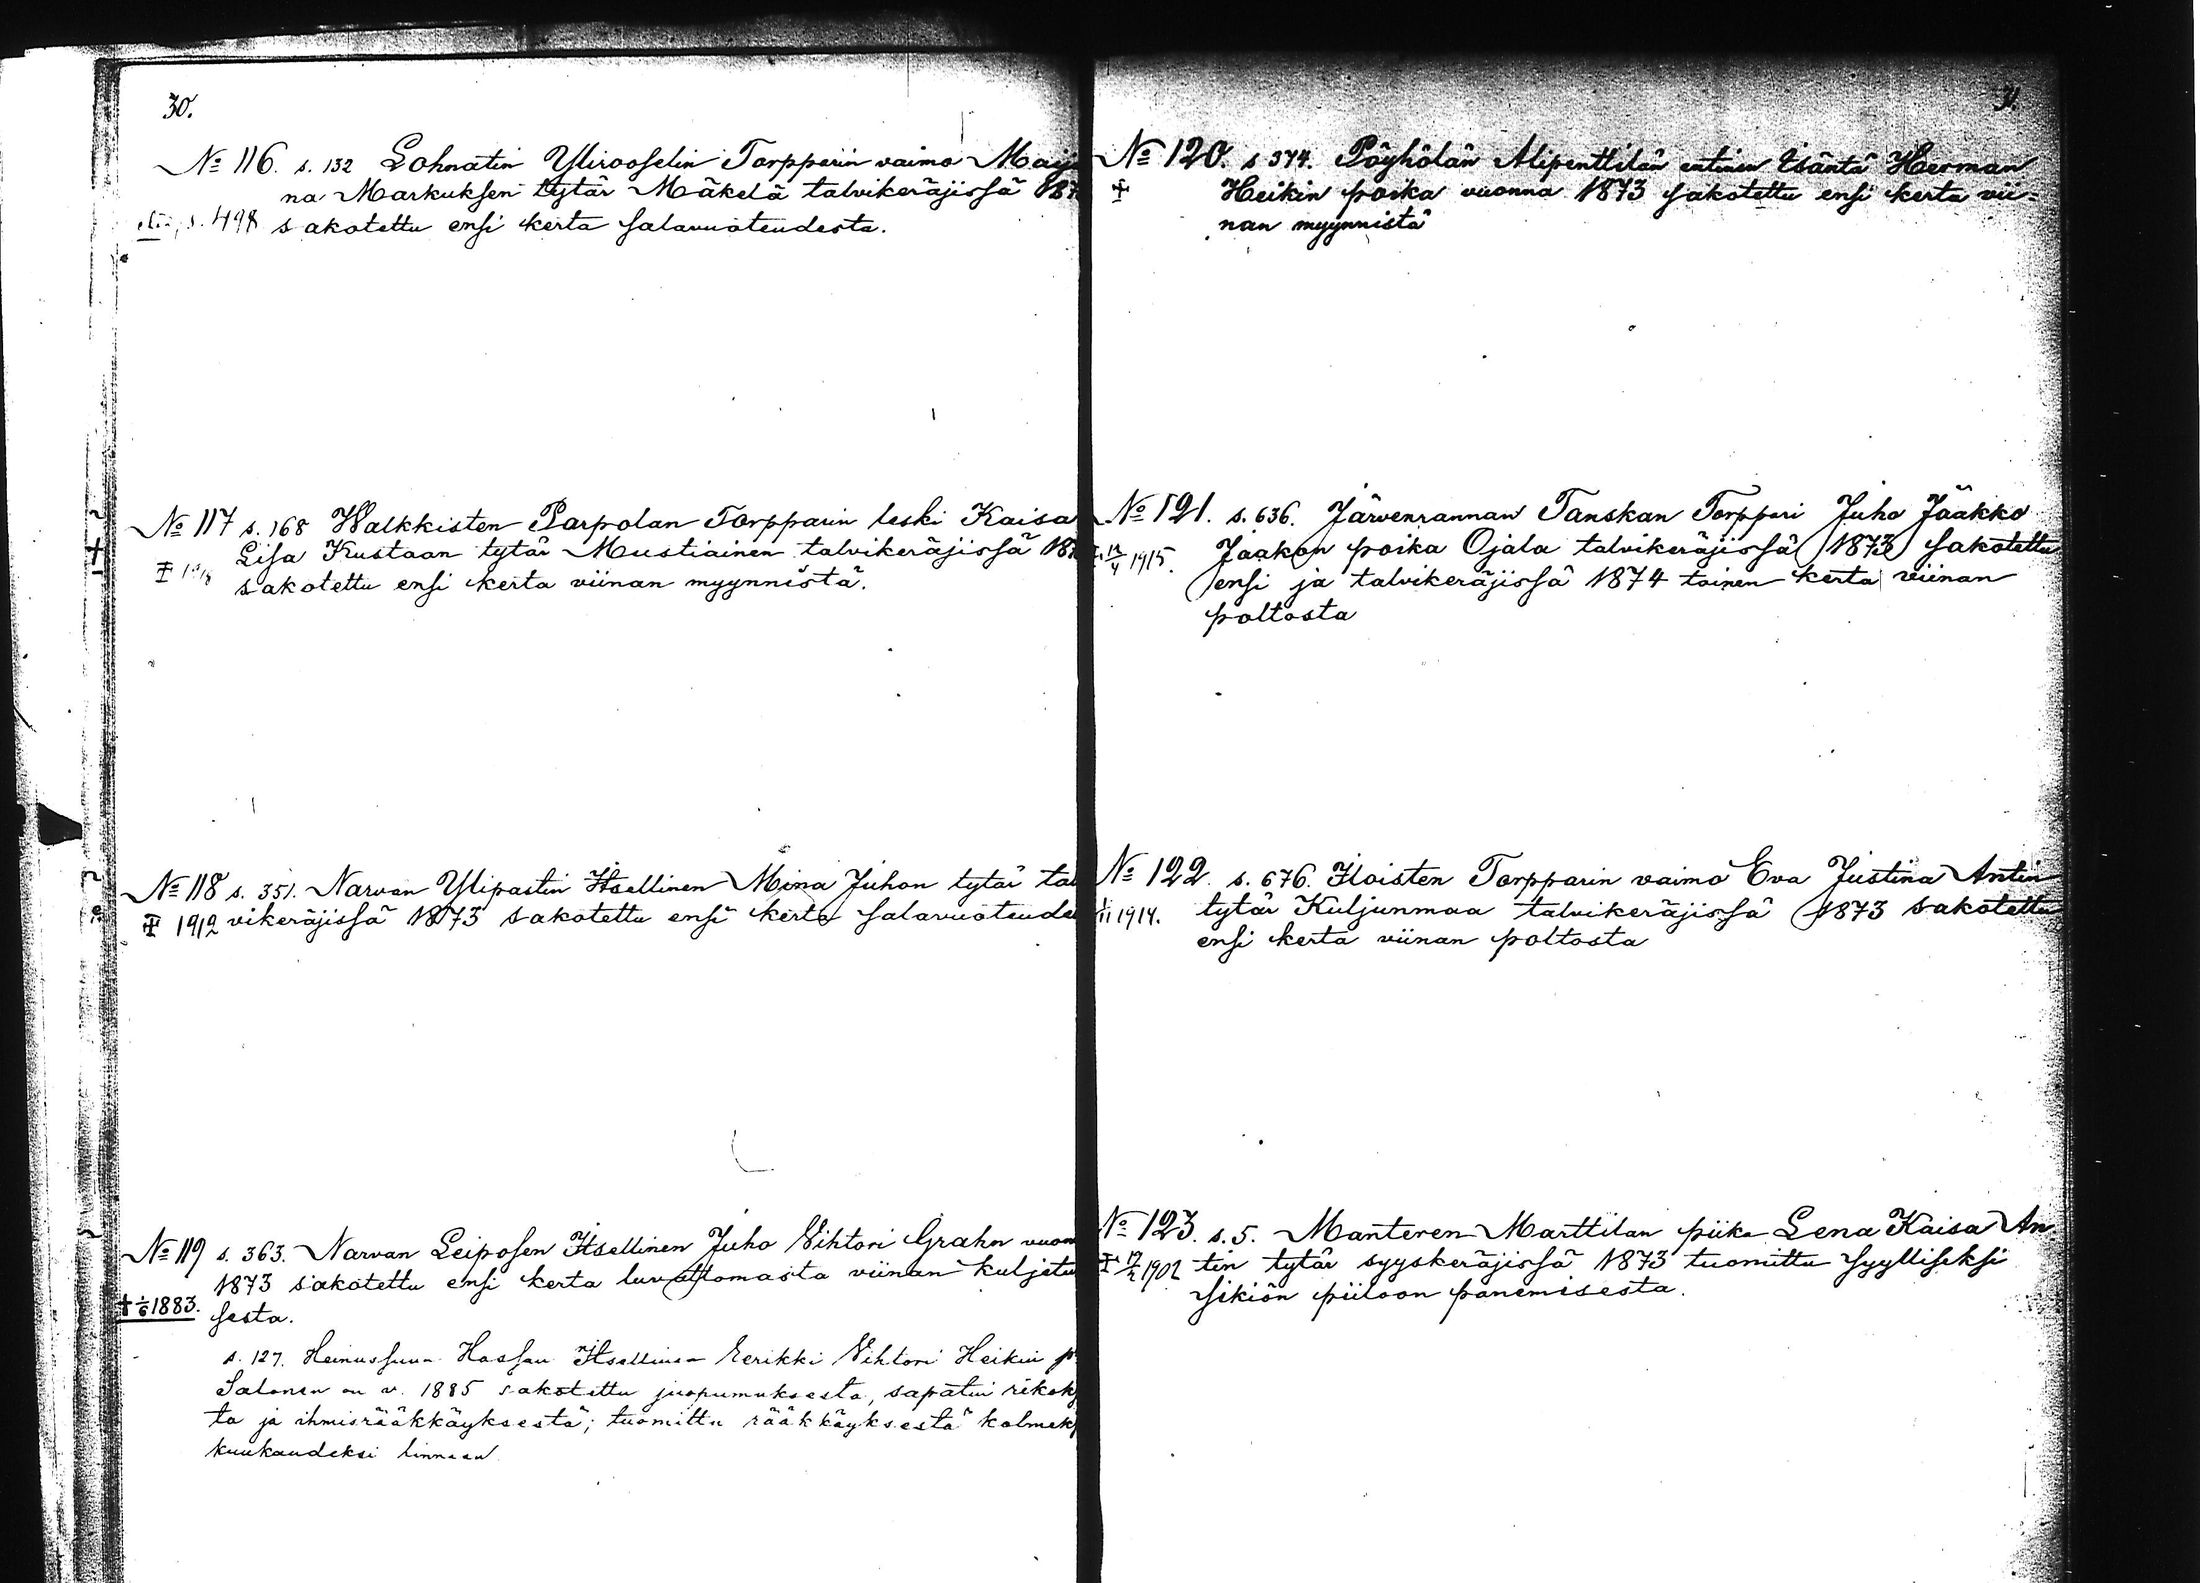 30.
№ 116. s. 132 Lohnatin Ylirooselin Torpparin vaimo Maij
na Markuksen tytär Mäkelä talvikeräjissä 187
s. 498 sakotettu ensi kerta salavuoteudesta.
№ 117 s. 168 Walkkisten Parpolan Torpparin leski Kaisa
Lisa Kustaan tytär Mustiainen talvikeräjissä 18
sakotettu ensi kerta viinan myynnistä.
№ 118 s. 351. Narvan Ylipastin Itsellinen Mina Juhon tytär tal
1912 vikeräjissä 1873 sakotettu ensi kerta salavuoteude
№ 119 s. 363. Narvan Leiposen Itsellinen Juho Vihtori Grahn vuon
1873 sakotettu ensi kerta luvattomasta viinan kuljetu
† 1/6 1883. sesta.
s. 127. Heinusuun Hassan Itsellinen Eerikki Vihtori Heikin p
Salonen on v. 1885 sakotettu juopumuksesta, sapatin rikok
ta ja ihmisrääkkäyksestä; tuomittu rääkkäyksestä kolmek
kuukaudeksi linnaan
31.
№ 120. s 374. Pöyhölän Alipenttilän entinen Isäntä Herman
Heikin poika vuonna 1873 sakotettu ensi kerta vii=
nan myynnistä
№ 121. s. 636. Järvenrannan Tanskan Torppari Juho Jaakko
1915. Jaakon poika Ojala talvikeräjissä 1873 sakotettu
ensi ja talvikeräjissä 1874 toinen kerta viinan
poltosta
№ 122. s. 676. Iloisten Torpparin vaimo Eva Justina Antin
1914. tytär Kuljunmaa talvikeräjissä 1873 sakotettu
ensi kerta viinan poltosta
№ 123. s. 5. Manteren Marttilan piika Lena Kaisa An-
1902 tin tytär syyskeräjissä 1873 tuomittu syylliseksi
sikiön piiloon panemisesta.